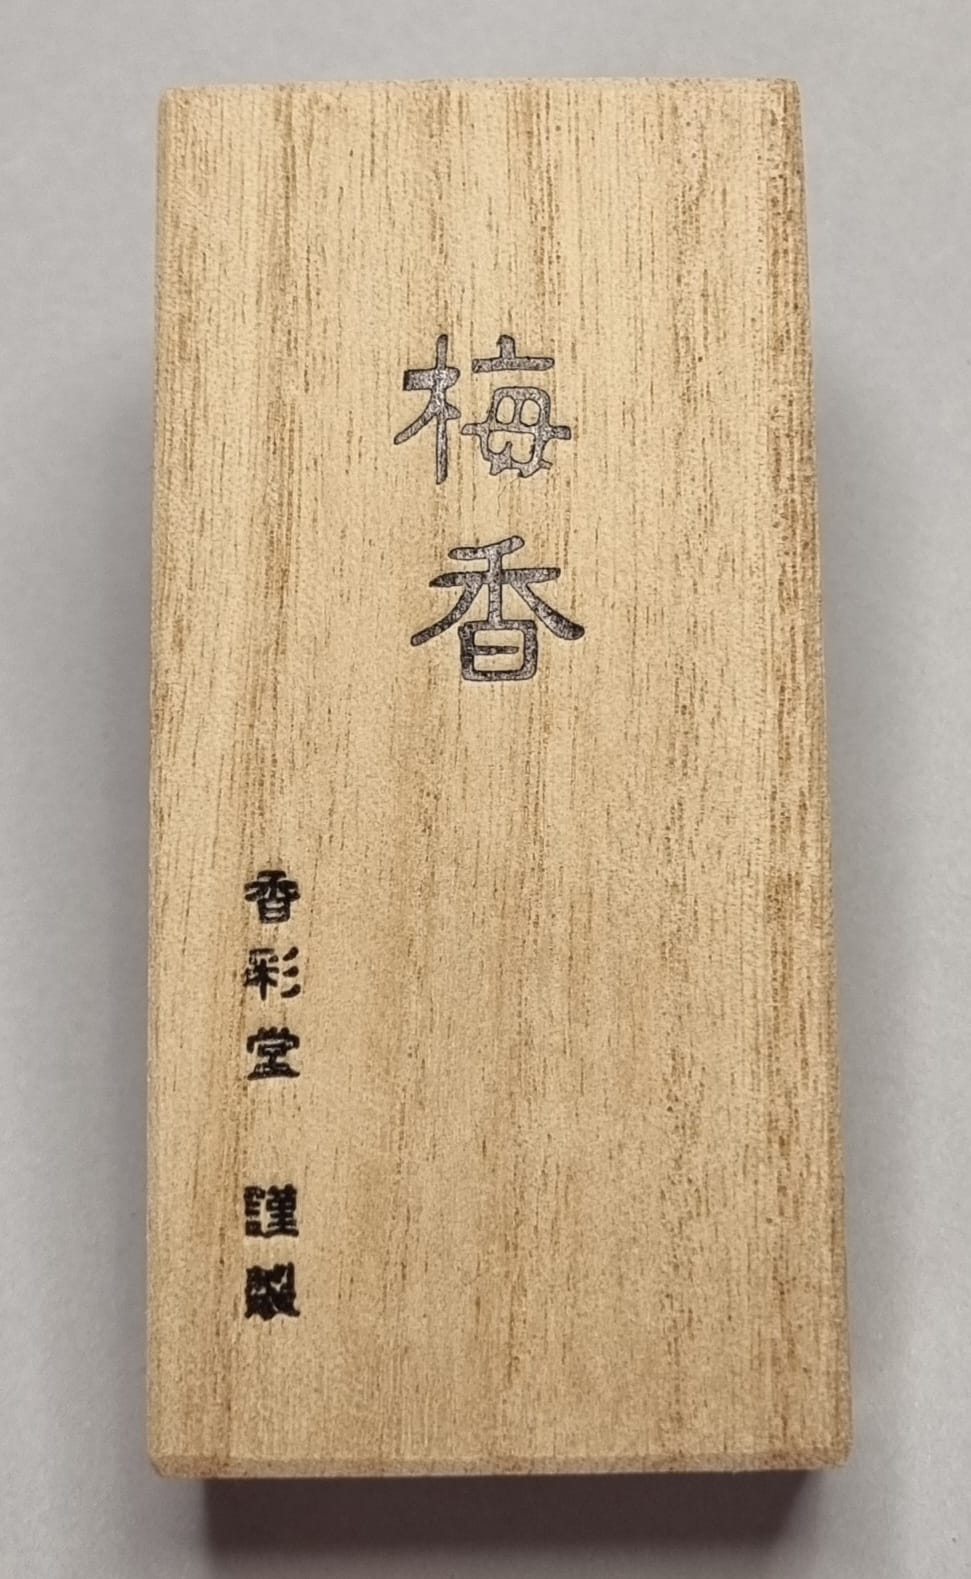 梅香
香彩堂 謹製